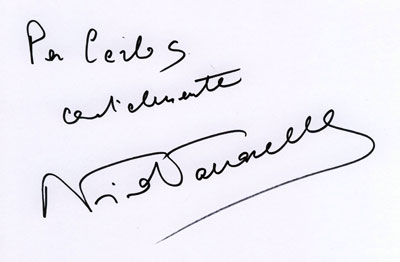 Per Carlos
cordialmente
Nino Vaccarella